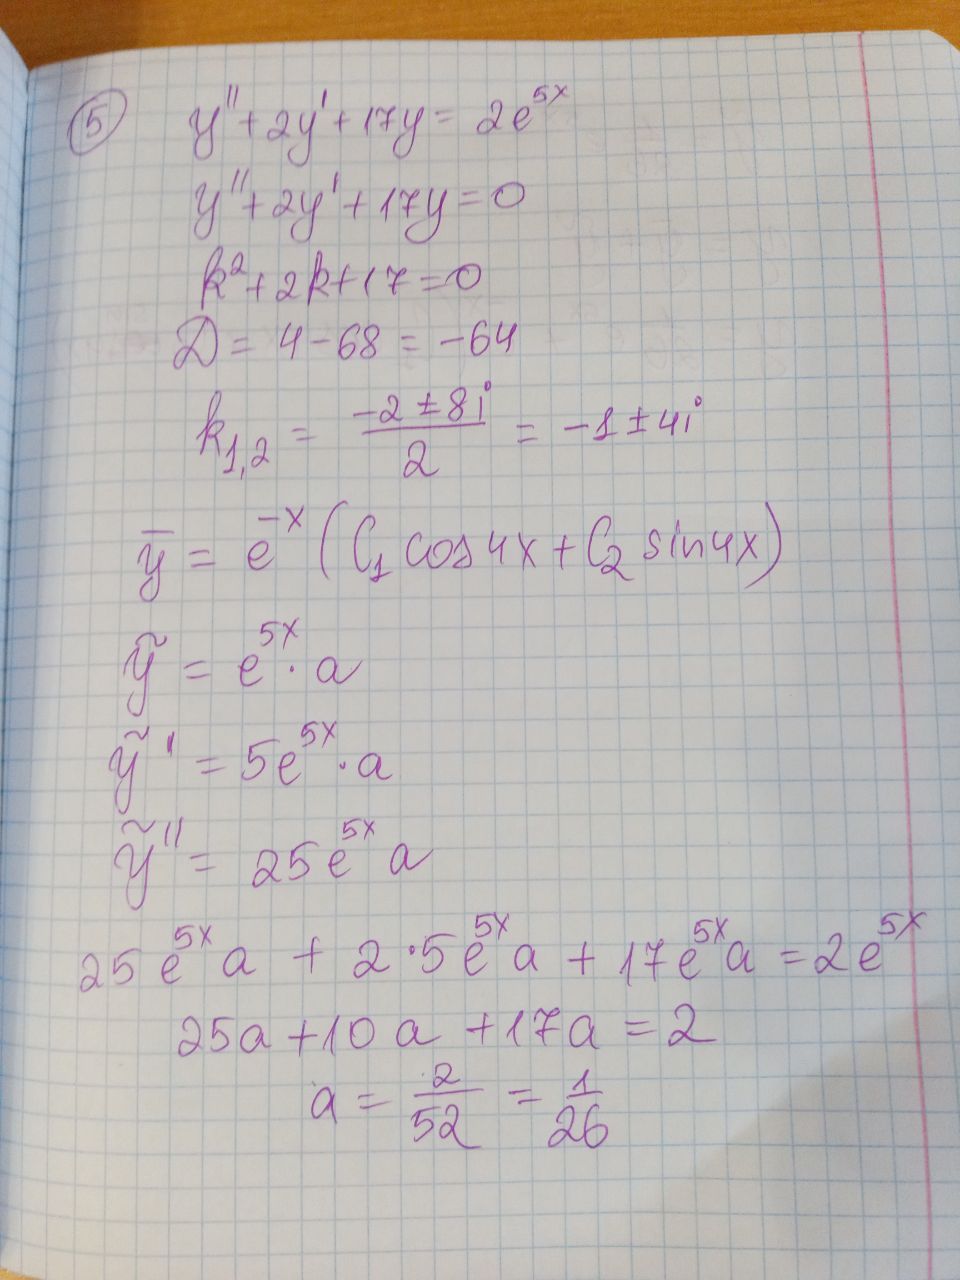 ⑤ y'' + 2y' + 17y = 2e^{5x}
y'' + 2y' + 17y = 0
k² + 2k + 17 = 0
D = 4 - 68 = -64
k_{1,2} = \frac{-2 ± 8i}{2} = -1 ± 4i
ȳ = e^{-x} (C₁ cos 4x + C₂ sin 4x)
ỹ = e^{5x} · a
ỹ' = 5e^{5x} · a
ỹ'' = 25e^{5x} a
25e^{5x} a + 2·5e^{5x} a + 17e^{5x} a = 2e^{5x}
25a + 10a + 17a = 2
a = \frac{2}{52} = \frac{1}{26}